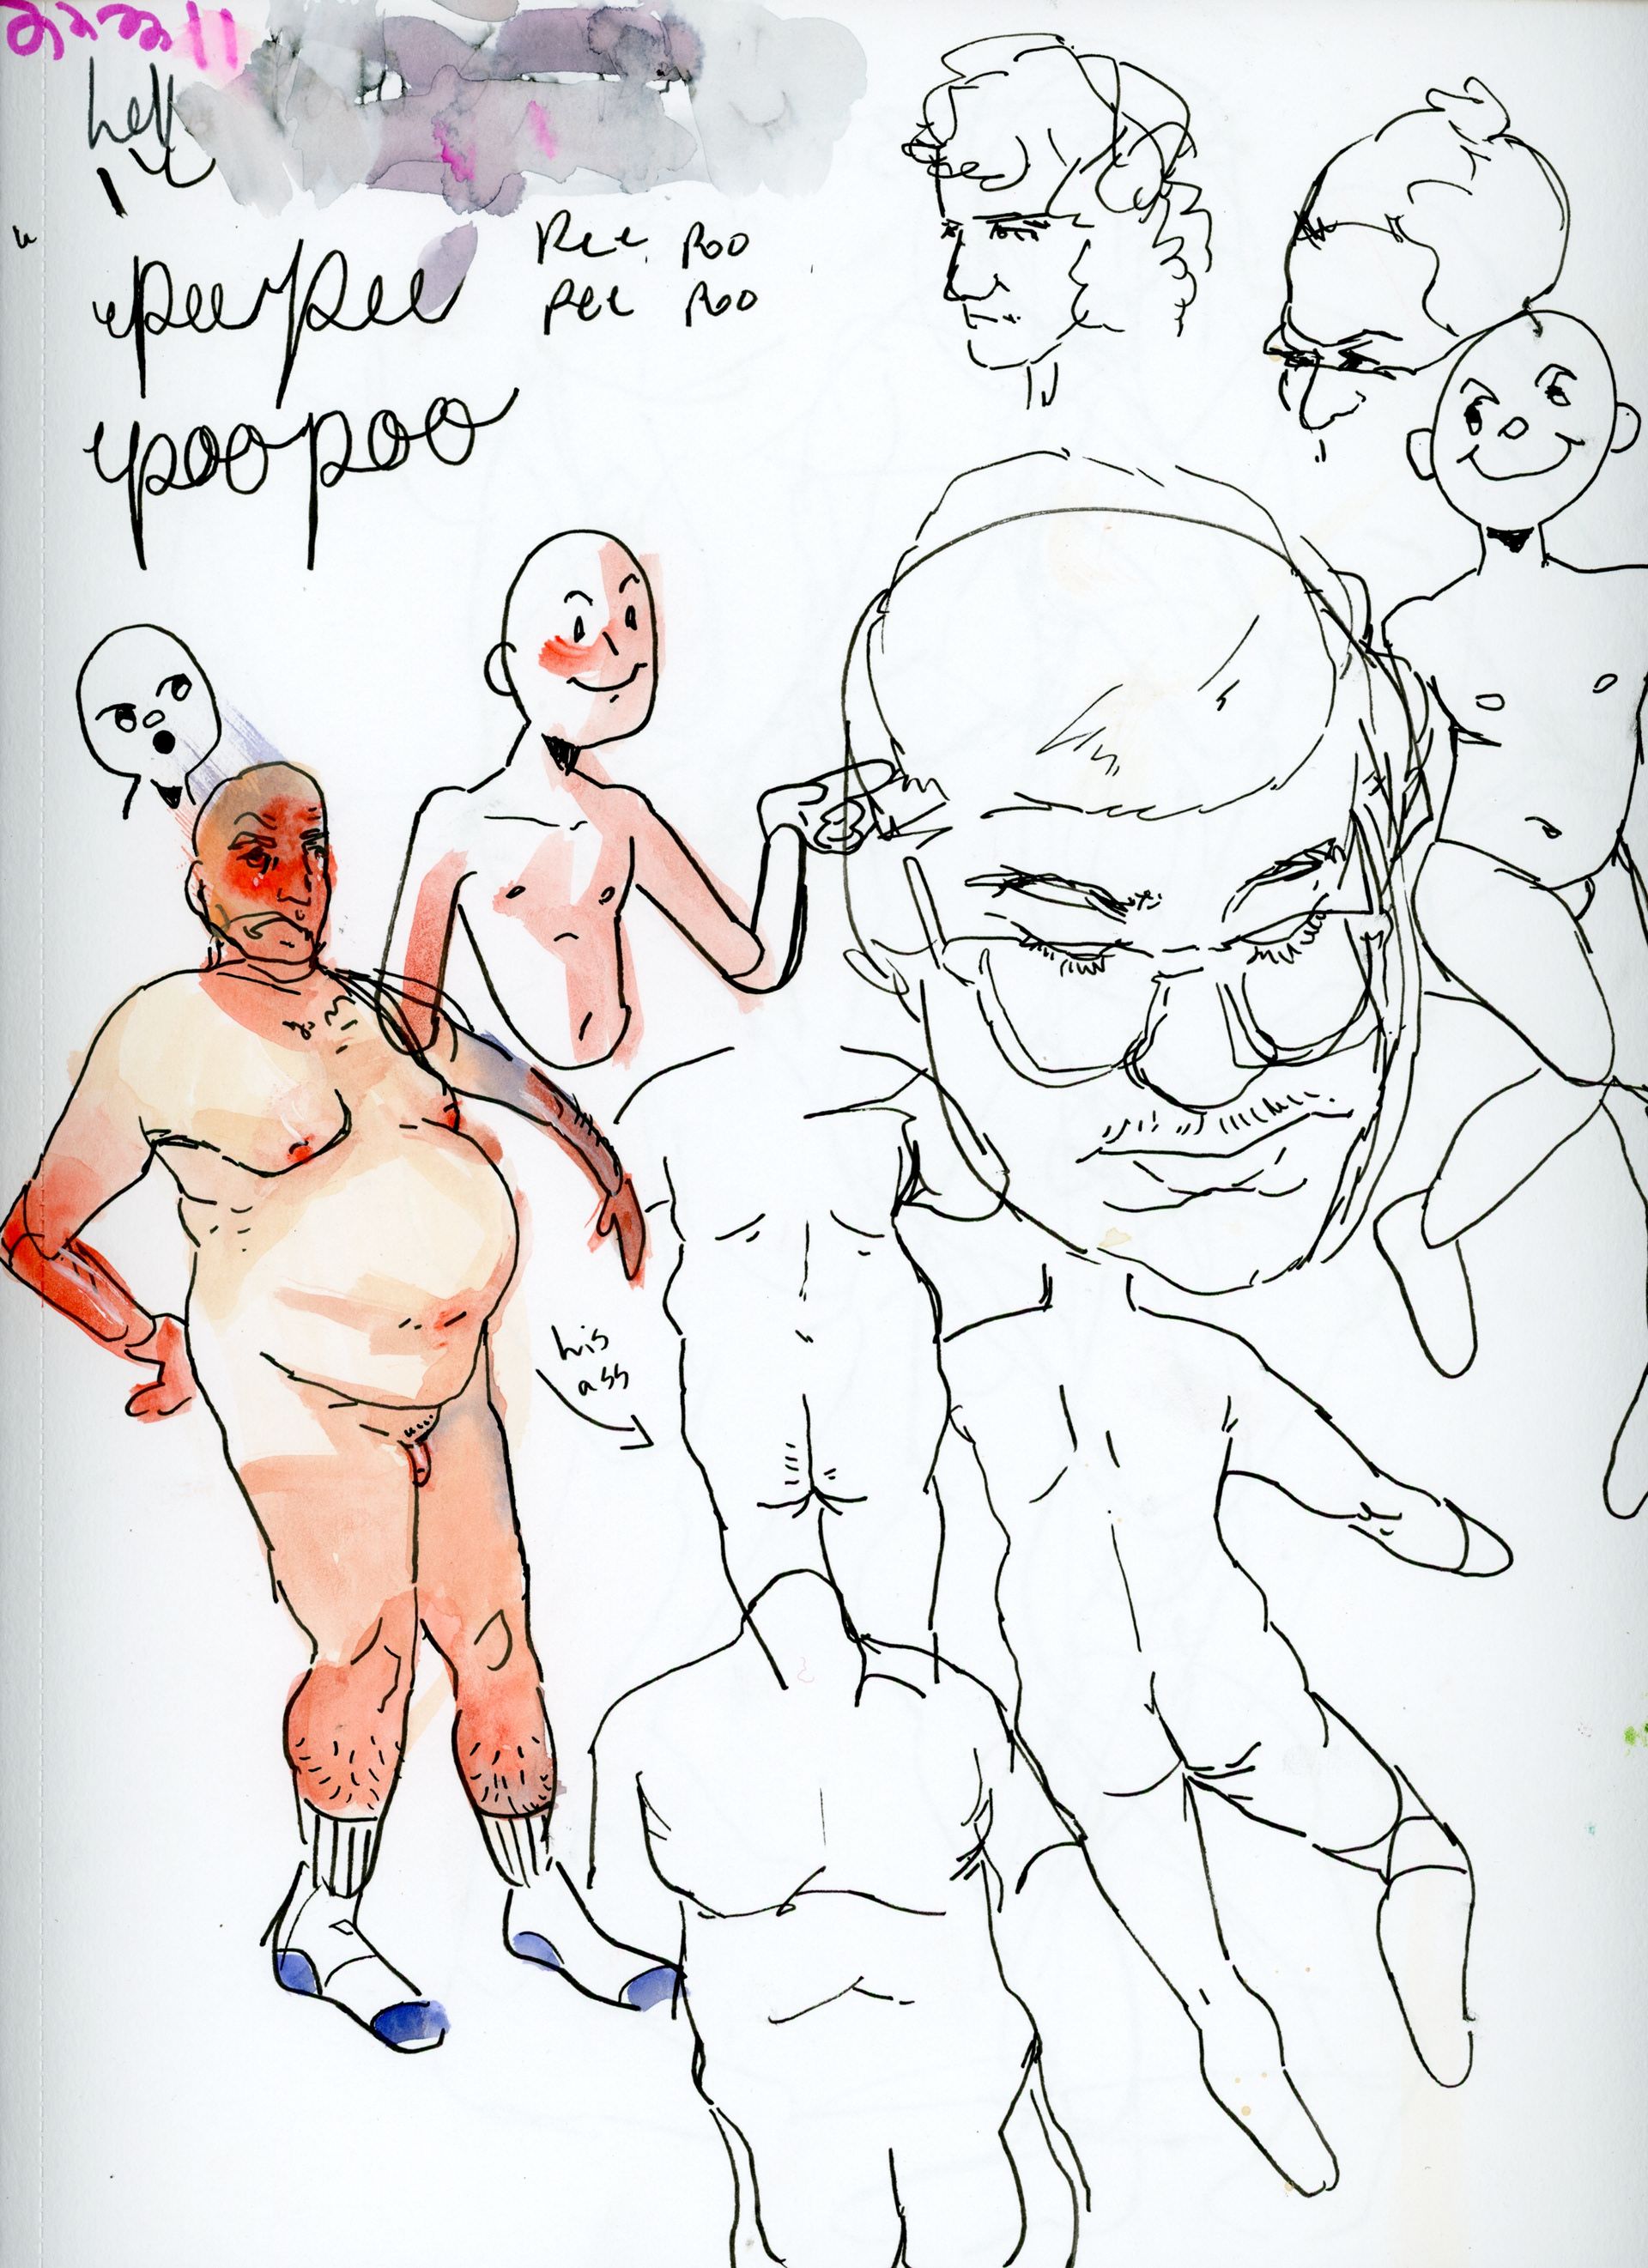 hell
peepee
poopoo
pee poo
pee poo
his
ass